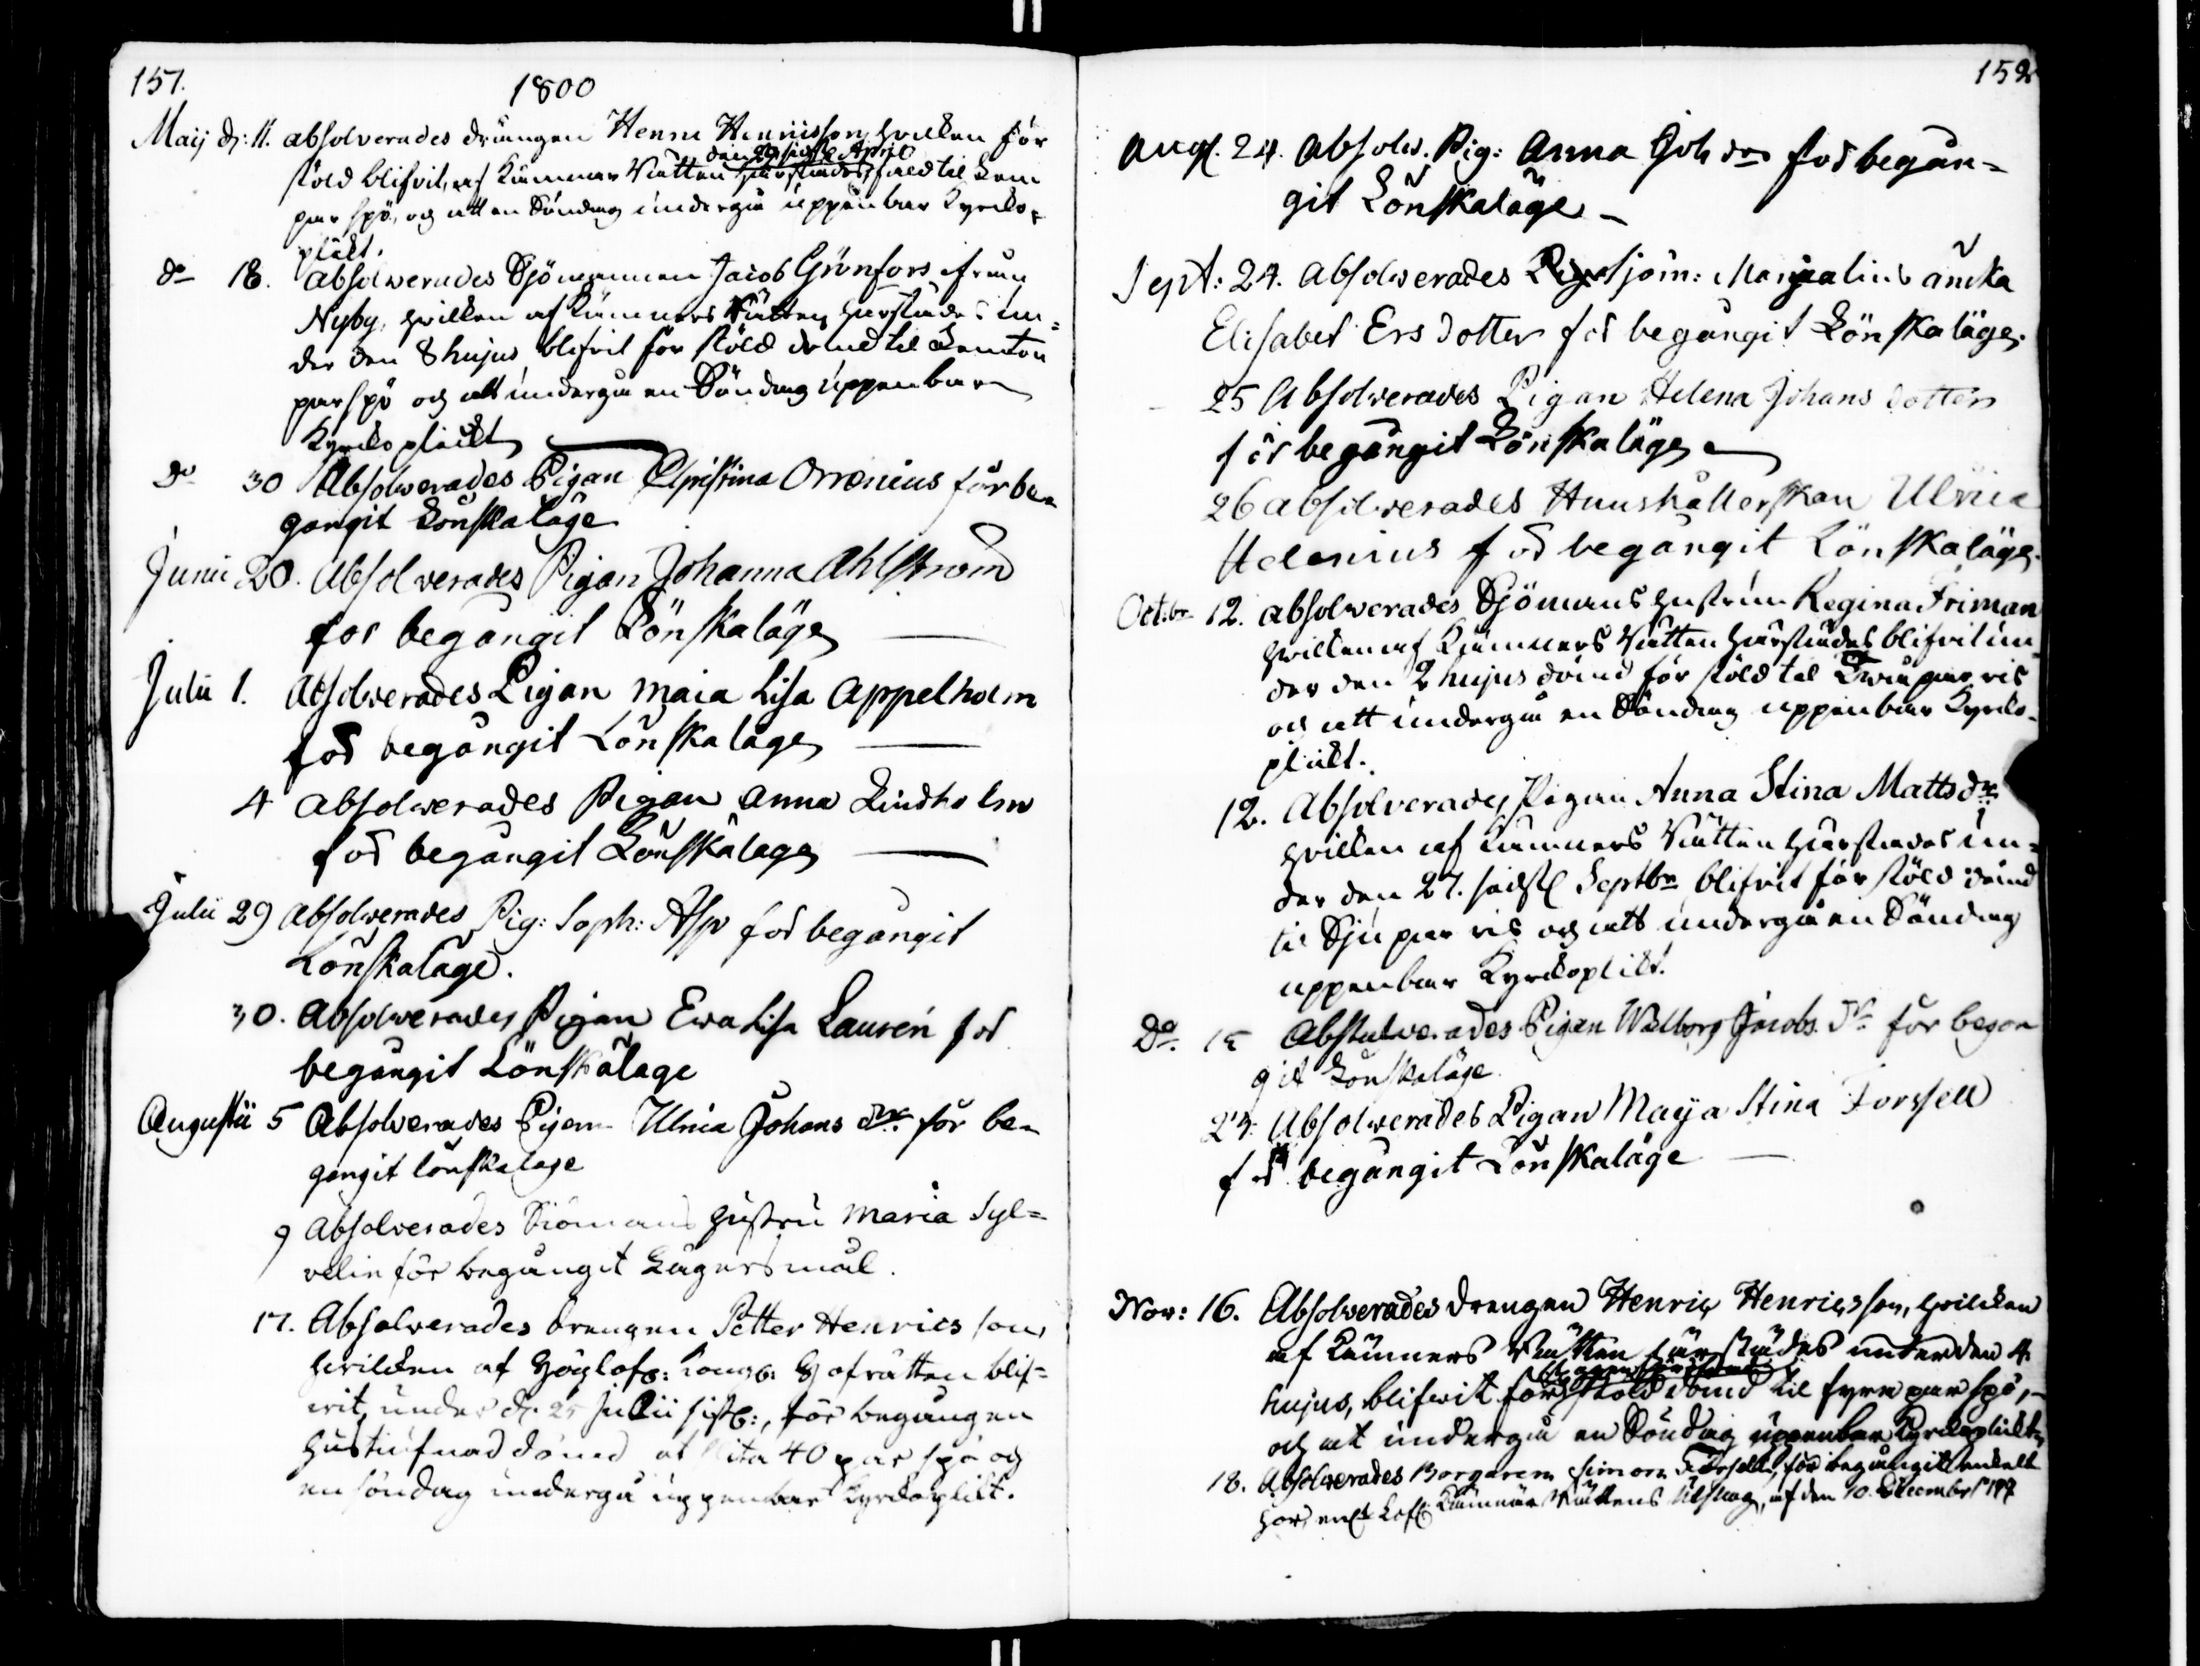 151.
1800
Maij d: 11. absolverades drängen Henric Henricsson, hvilken för
stöld blifvit, af Kämners Rätten härstädes, den 29 sidstl. April fäld til fem
par spö, og att en Söndag undergå uppenbar Kyrko-
plikt.
do 18. absolwerades Sjömannen Jacob Grönfors ifrån
Nyby, hvilken af Kämners Rätten härstädes un-
der den 8 hujus blifvit för stöld dömd til femton
par spö og att undergå en Söndag uppenbar
Kyrkoplickt
do 30 Absolwerades Pigan Christina Orrænius för be-
gangit Lönskaläge
Junii 20. Absolverades Pigan Johanna Ahlström
för begångit Lönskaläge
Julii 1. Absolwerades Pigan Maia Lisa Appelholm
för begångit Lönskaläge
4 Absolwerades Pigan Anna Lindholm
för begångit Lönskaläge
Julii 29 Absolwerades Pig: Soph: Asp för begångit
Lönskaläge.
30. Absolwerades Pigan Ewa Lisa Laurén för
begångit Lönskaläge
Augustii 5 Absolverades Pigan Ulrica Johans dr för be-
gangit lönskalage
9 Absolverades Siömans hustru Maria Syl=
velin för begångit Lägersmål.
17. Absolverades drengen Petter Henrics son,
hvilcken af Höglofl: Kongl: Hofrätten blif=
vit, under d. 25 Julii sistl:, för begången
dömd at slita 40 par spö og
en söndag undergå uppenbar Kyrkoplikt.
152
Aug. 24. Absolw. Pig: Anna Joh dr för begån=
git Lönskaläge
Sept: 24. Absolwerades Sjöm: änka
Elisabet Ersdotter för begångit Lönskaläge.
25 Absolwerades Pigan Helena Johans dotter
för begångit Lönskaläge
26 absolwerades Huushållerskan Ulrica
för begångit Lönskaläge.
Octobr 12. absolwerades Sjömans hustrun Regina Friman
hvilken af Kämners Rätten härstädes blifvit un-
der den 2 hujus dömd för stöld til Twå par ris
och att undergå en Söndag uppenbar Kyrko-
plickt.
12. Absolverades Pigan Anna Stina Mattsdr
hvilken af Kämners Rätten härstädes un=
der den 27. sidstl Septbr blifvit för stöld dömd
til Sju par ris og att undergå en Söndag
uppenbar Kyrkoplikt.
Do. 15 Absolwerades Pigan Walborg Jacobs dr för begån
git Lönskaläge
24. Absolwerades Pigan Maija Stina Forssell
för begångit Lönskaläge
Nov: 16. Absolwerades drengen Henric Henricsson, hvilcken
af Kämners Rätten härstädes under den 4.
hujus, blifwit för stöld dömd til fyra par spö,
och att undergå en Söndag uppenbar Kyrkoplickt
18. Absolwerades Borgaren Simon Forssell, för begångit enkelt
hor, enl. Lofl. Kämnärs Rättens Utslag, af den 10. Decembr